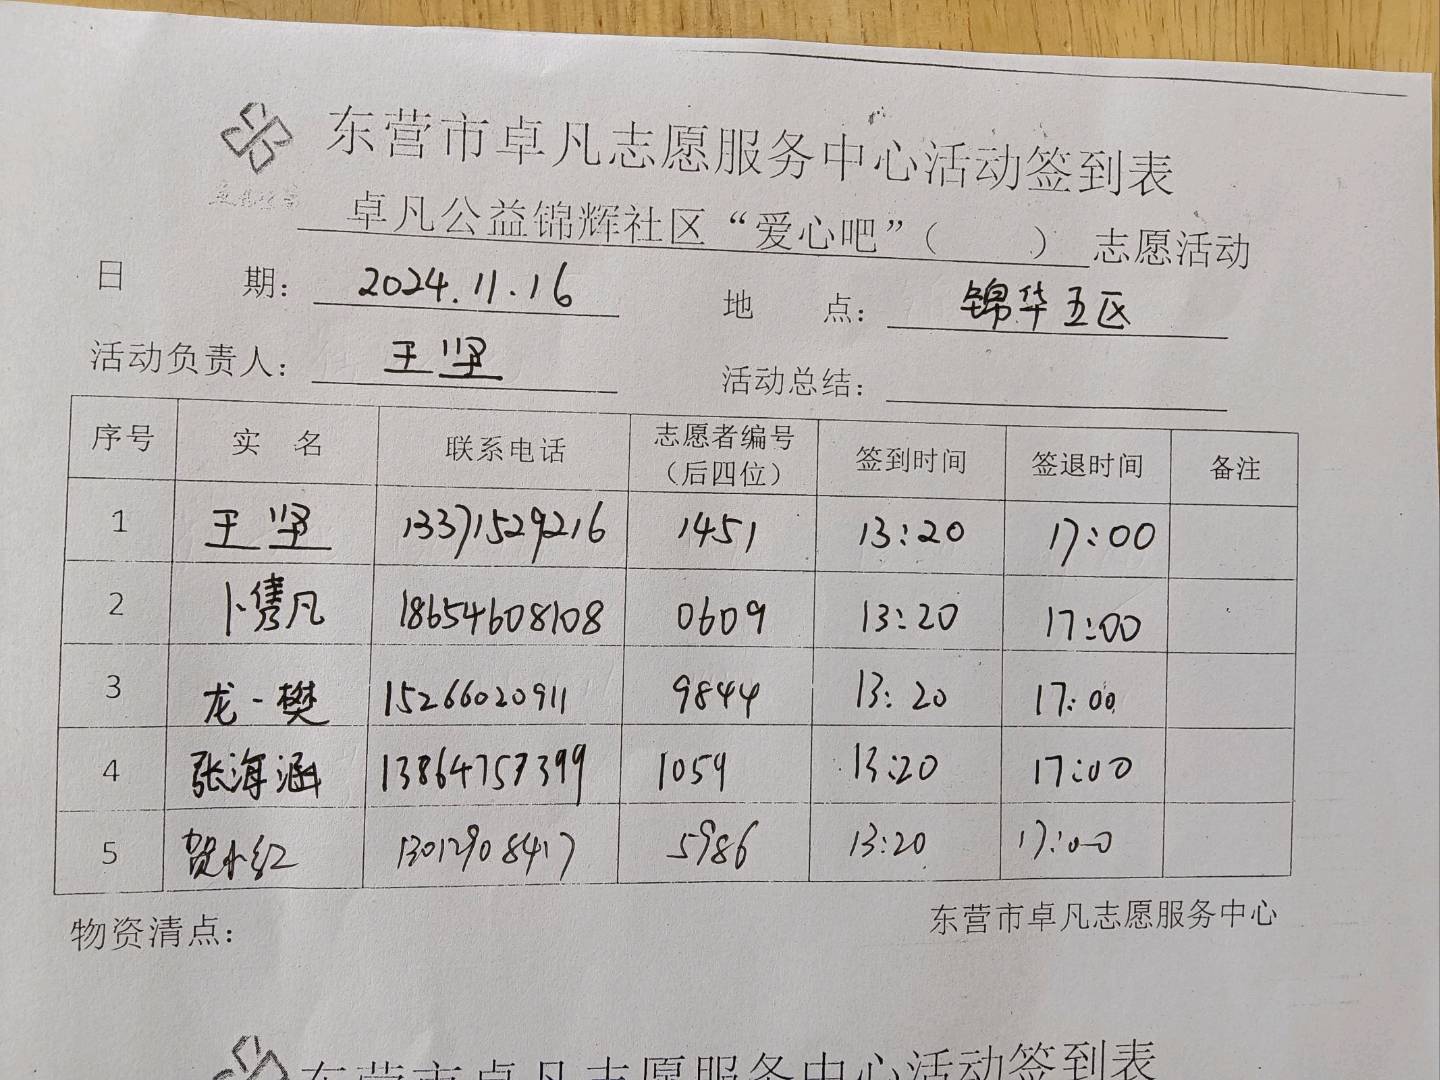 东营市卓凡志愿服务中心活动签到表
卓凡公益锦辉社区“爱心吧”（ ）志愿活动
日 期： 2024.11.16 地 点： 锦华五区
活动负责人： 王坚 活动总结：
序号 实 名 联系电话 志愿者编号（后四位） 签到时间 签退时间 备注
1 王坚 13371529216 1451 13:20 17:00
2 卜隽凡 18654608108 0609 13:20 17:00
3 龙一樊 15266020911 9844 13:20 17:00
4 张海涵 13864757399 1059 13:20 17:00
5 贺小红 13012908417 5986 13:20 17:00
物资清点： 东营市卓凡志愿服务中心
东营市卓凡志愿服务中心活动签到表